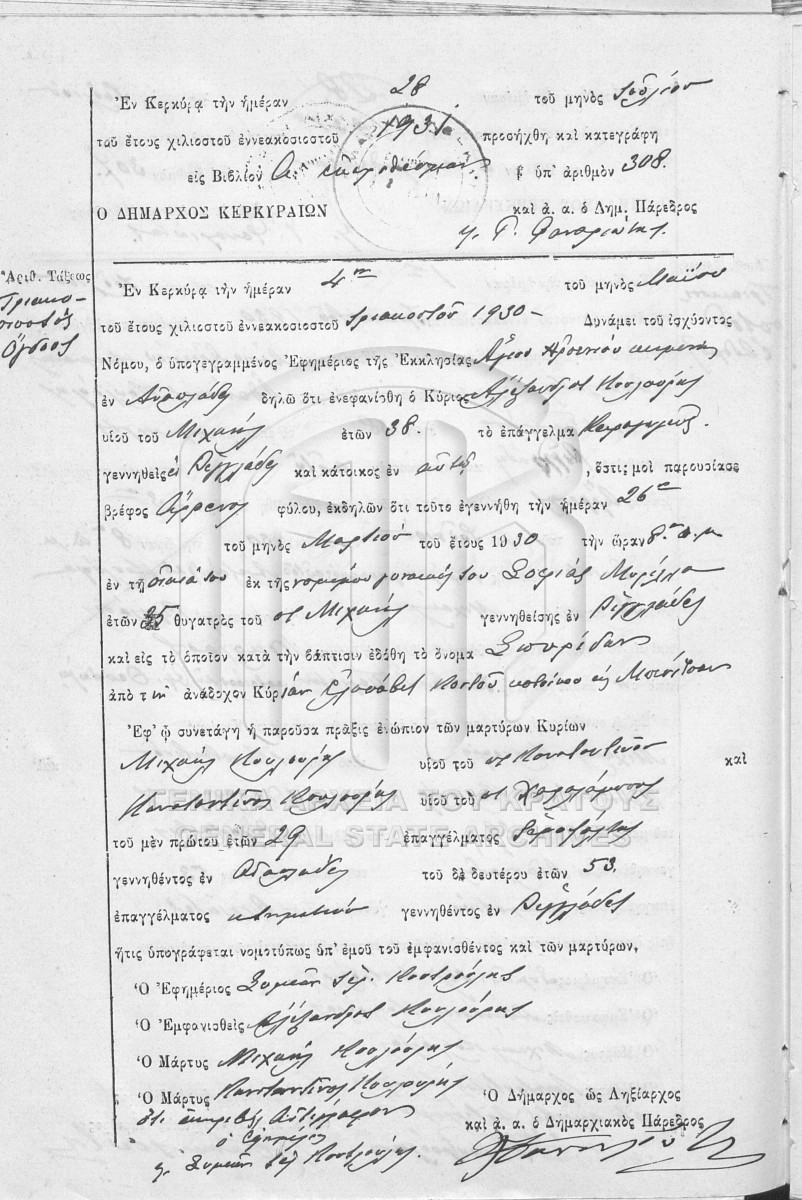 Ἐν Κερκύρᾳ τὴν ἡμέραν 28 τοῦ μηνὸς Ἰουλίου
τοῦ ἔτους χιλιοστοῦ ἐννεακοσιοστοῦ 1931 προσήχθη καὶ κατεγράφη
εἰς Βιβλίον ὑπ' ἀριθμὸν 308.
Ο ΔΗΜΑΡΧΟΣ ΚΕΡΚΥΡΑΙΩΝ καὶ ἀ. α. ὁ Δημ. Πάρεδρος
Ἀριθ. Τάξεως
Τριακο-
ποστός
Ὄγδοος
Ἐν Κερκύρᾳ τὴν ἡμέραν 4ην τοῦ μηνὸς Μαΐου
τοῦ ἔτους χιλιοστοῦ ἐννεακοσιοστοῦ τριακοστοῦ 1930 – Δυνάμει τοῦ ἰσχύοντος
Νόμου, ὁ ὑπογεγραμμένος Ἐφημέριος τῆς Ἐκκλησίας Ἁγίου
ἐν δηλῶ ὅτι ἐνεφανίσθη ὁ Κύριος Ἀλέξανδρος Κουλούρης
υἱοῦ τοῦ Μιχαήλ ἐτῶν 38. τὸ ἐπάγγελμα
γεννηθεὶς ἐν Ρεγγλάδες καὶ κάτοικος ἐν αὐτῷ, ὅστις μοὶ παρουσίασε
βρέφος Ἄρρενος φύλου, ἐκδηλῶν ὅτι τοῦτο ἐγεννήθη τὴν ἡμέραν 26
τοῦ μηνὸς Μαρτίου τοῦ ἔτους 1930 τὴν ὥραν 8ην π.μ
ἐν τῇ οἰκίᾳ του ἐκ τῆς νομίμου γυναικός του Σοφίας
ἐτῶν 35 θυγατρὸς τοῦ Μιχαήλ γεννηθείσης ἐν Ρεγγλάδες
καὶ εἰς τὸ ὁποῖον κατὰ τὴν βάπτισιν ἐδόθη τὸ ὄνομα Σπυρίδων
ἀπὸ τὴν ἀνάδοχον Κυρίαν Ἐλισάβετ
Ἐφ' ᾧ συνετάγη ἡ παροῦσα πρᾶξις ἐνώπιον τῶν μαρτύρων Κυρίων
Μιχαήλ Κουλούρης υἱοῦ τοῦ Κωνσταντίνου καὶ
Κωνσταντῖνος Κουλούρης υἱοῦ τοῦ Χαραλάμπους
ΓΕΝΙΚΑ ΑΡΧΕΙΑ ΤΟΥ ΚΡΑΤΟΥΣ
GENERAL STATE ARCHIVES
τοῦ μὲν πρώτου ἐτῶν 29 ἐπαγγέλματος Ἱεροψάλτης
γεννηθέντος ἐν τοῦ δὲ δευτέρου ἐτῶν 53.
ἐπαγγέλματος κτηματίου γεννηθέντος ἐν Ρεγγλάδες
ἥτις ὑπογράφεται νομοτύπως ὑπ' ἐμοῦ τοῦ ἐμφανισθέντος καὶ τῶν μαρτύρων.
Ὁ Ἐφημέριος Συμεὼν
Ὁ Ἐμφανισθεὶς Ἀλέξανδρος Κουλούρης
Ὁ Μάρτυς Μιχαήλ Κουλούρης
Ὁ Μάρτυς Κωνσταντῖνος Κουλούρης
Ὁ Δήμαρχος ὡς Ληξίαρχος
ὅτι ἀκριβὲς Ἀντίγραφον
καὶ ἀ. α. ὁ Δημαρχιακὸς Πάρεδρος
ὁ Ἐφημέριος
Συμεὼν